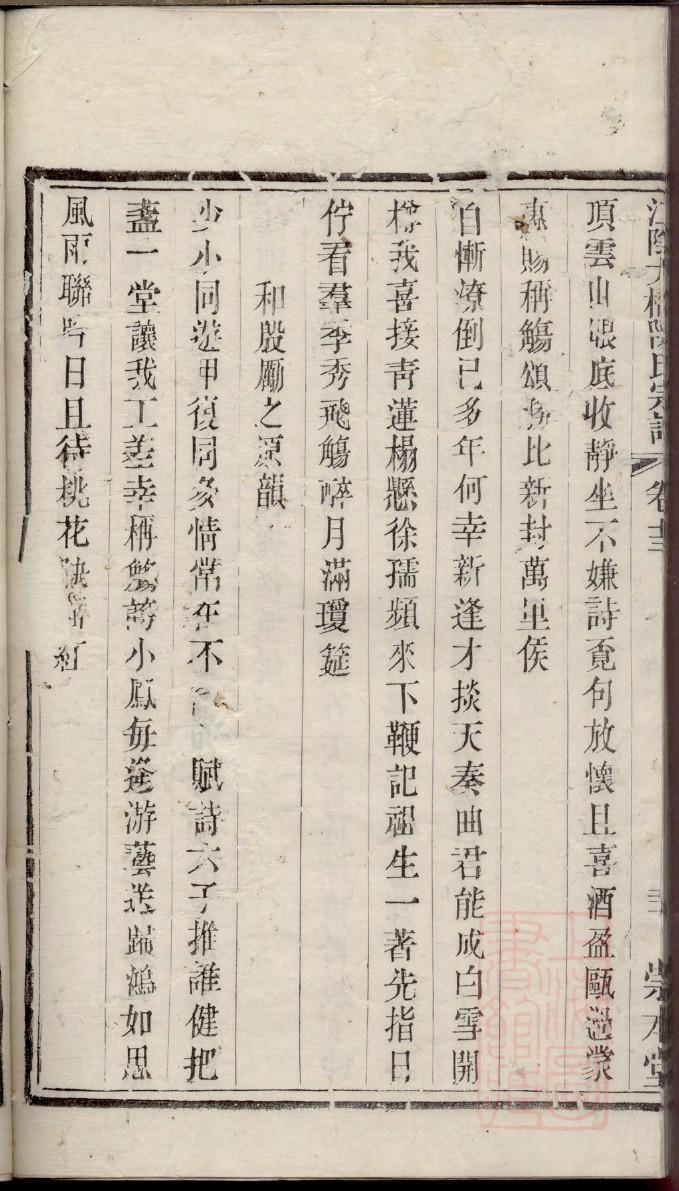 江陰九橋陳氏宗譜 卷
崇本堂
頂雲山眼底收靜坐不嫌詩覓句放懷且喜酒盈甌過蒙
惠賜稱觴頌比新封萬里侯
自慚潦倒已多年何幸新逢才掞天奏曲君能成白雪開
樽我喜接青蓮榻懸徐孺頻來下鞭記祖生一著先指日
佇看羣季秀飛觴醉月滿瓊筵
和殷勵之原韻
少小同遊甲復同多情常在不言賦詩六子推誰健把
盞一堂讓我工差幸稱觴誇小鳳每逢游藝送歸鴻如思
風雨聯吟日且待桃花紅
上海圖書館藏